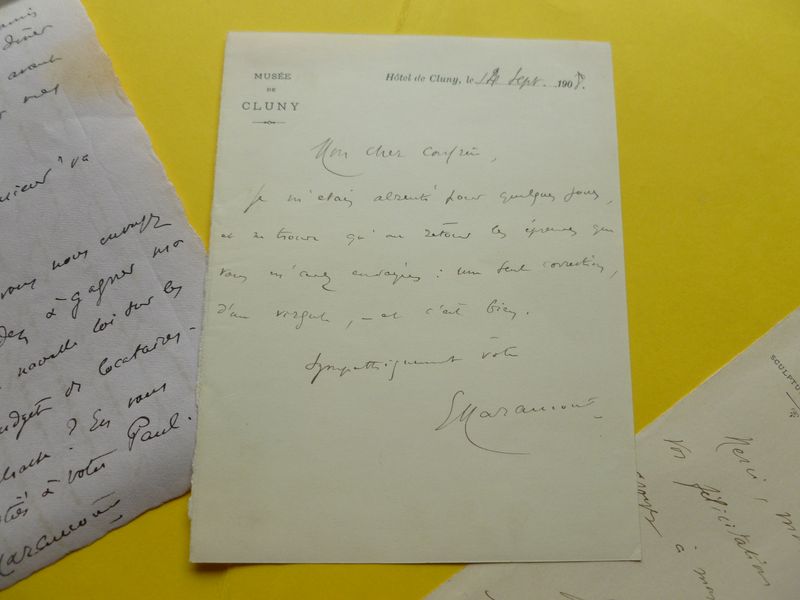 MUSÉE
DE
CLUNY
Hôtel de Cluny, le 14 Sept. 1908.
Mon cher confrère,
Je m'étais absenté pour quelques jours,
et ne trouve qu'au retour les épreuves que
vous m'avez envoyées : une seule correction,
d'une virgule, – et c'est bien.
Sympathiquement vôtre
Haraucourt
dîner
avant
mes
Monsieur va
vous nous envoyez
à gagner ma
nouvelle loi sur les
budgets de locataires –
? En vous
à votre Paul.
Haraucourt
SCULPTU
Merci, m
vos félicitations
à mon